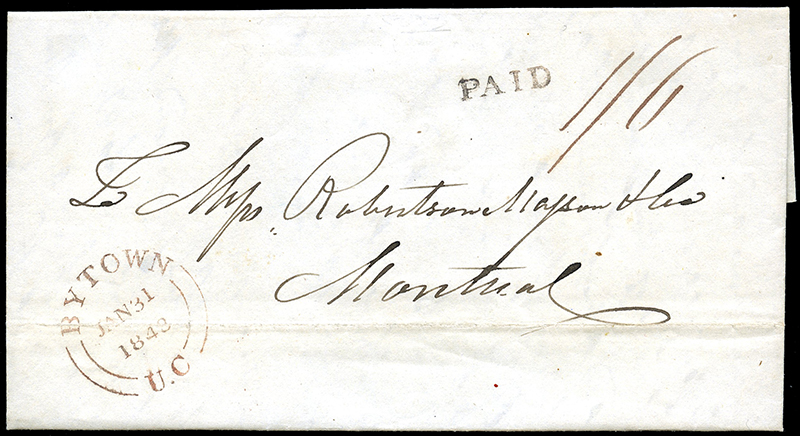 PAID 1/6
To Messrs Robertson Masson & Co
Montreal
BYTOWN
JAN 31
1848
U.C